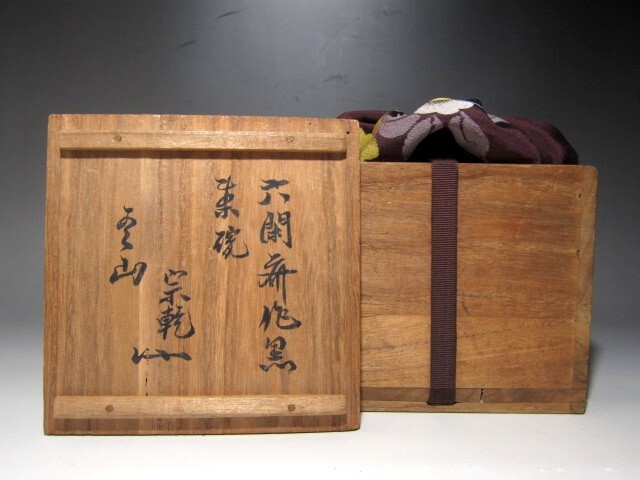 六閑斎作黒
茶碗
宗乾
山